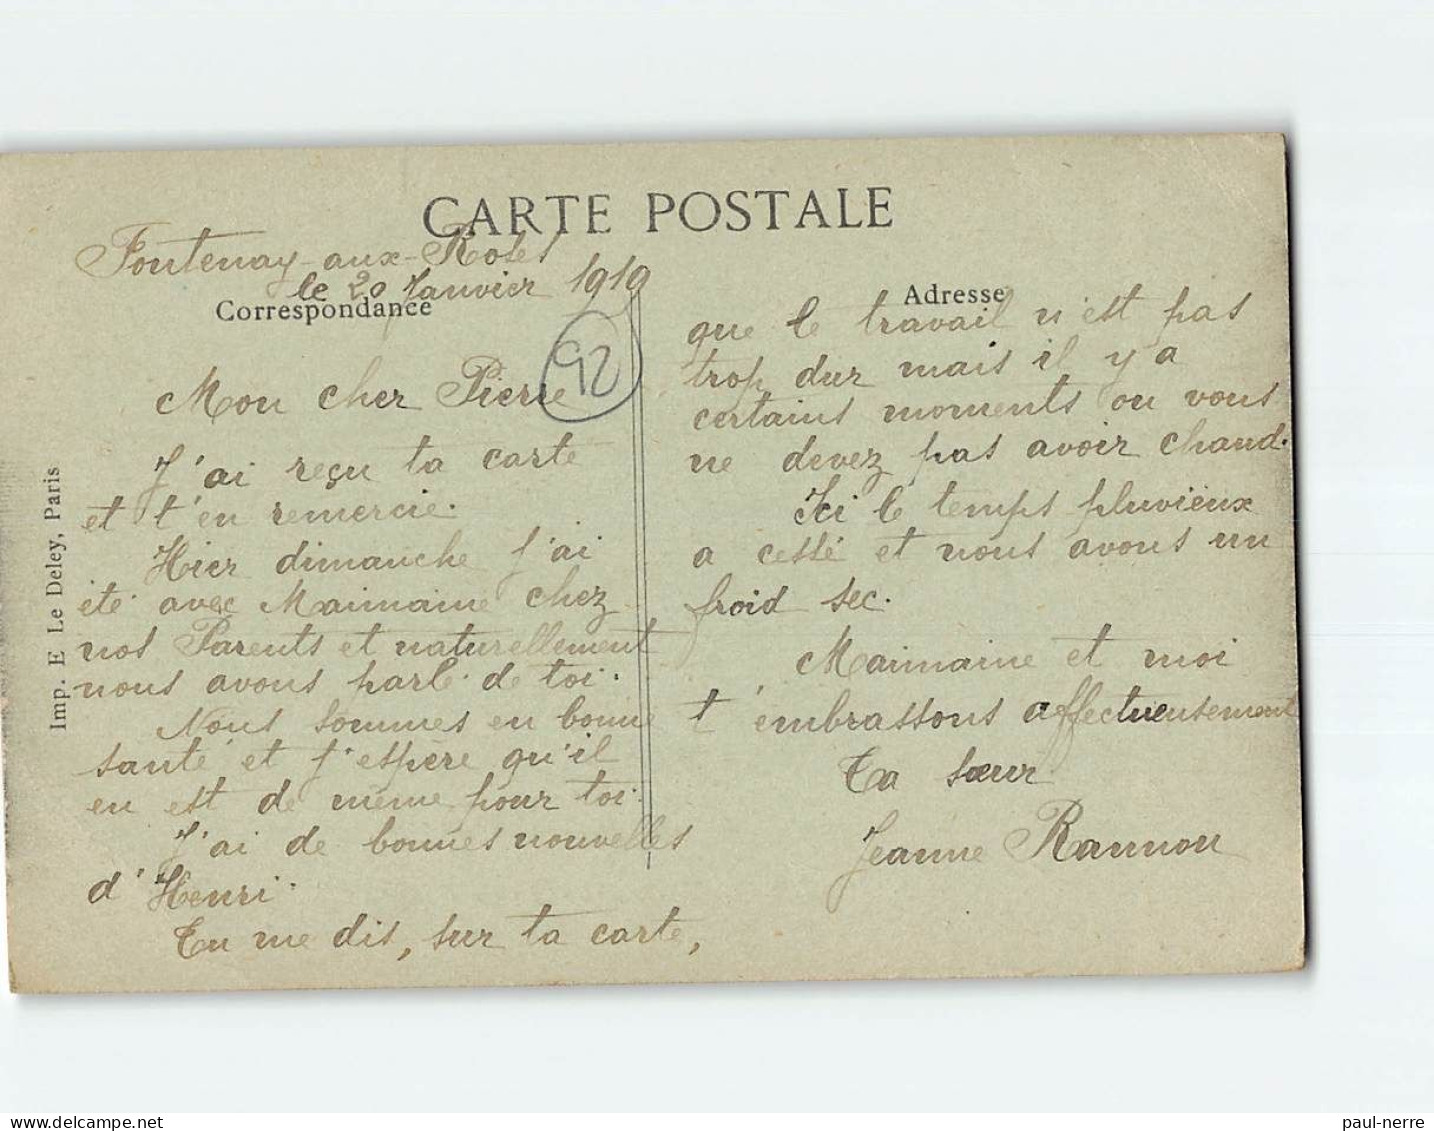 CARTE POSTALE
Fontenay-aux-Roses
le 20 Janvier 1919
Correspondance
Adresse
92
Mon cher Pierre
J'ai reçu ta carte
et t'en remercie.
Hier dimanche j'ai
été avec Maimaine chez
nos Parents et naturellement
nous avons parlé de toi.
Nous sommes en bonne
santé et j'espère qu'il
en est de même pour toi.
J'ai de bonnes nouvelles
d'Henri.
Tu me dis, sur ta carte,
que le travail n'est pas
trop dur mais il y a
certains moments ou vous
ne devez pas avoir chaud.
Ici le temps pluvieux
a cessé et nous avons un
froid sec.
Maimaine et moi
t'embrassons affectueusement
Ta sœur
Jeanne Rannou
Imp. E Le Deley, Paris
paul-nerre